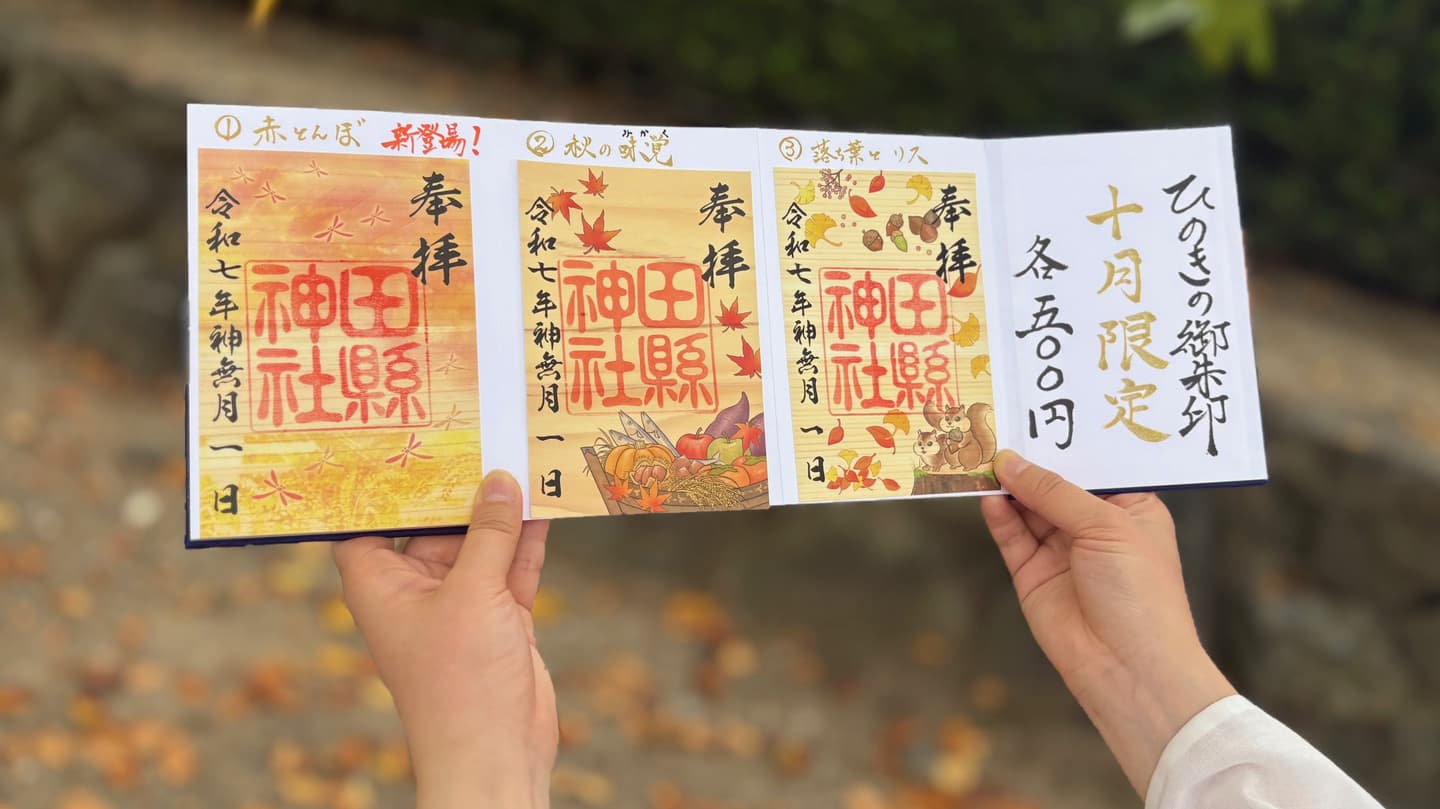 ① 赤とんぼ 新登場!
奉拝
田縣
神社
令和七年神無月一日
② 秋の味覚
みかく
奉拝
田縣
神社
令和七年神無月一日
③ 落ち葉とリス
奉拝
田縣
神社
令和七年神無月一日
ひのきの御朱印
十月限定
各五〇〇円